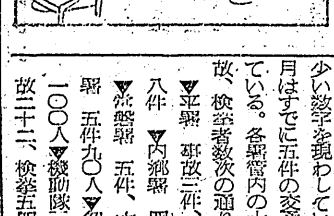 少い数字を現わして
月はすでに五件の変
ている。各署管内の
故、検挙者数次の通り
▼平署 事故三件、
八件 ▼内郷署 四
▼常磐署 五件、
署 五件九〇人▼
一〇〇人▼機動隊
故二十二、検挙五